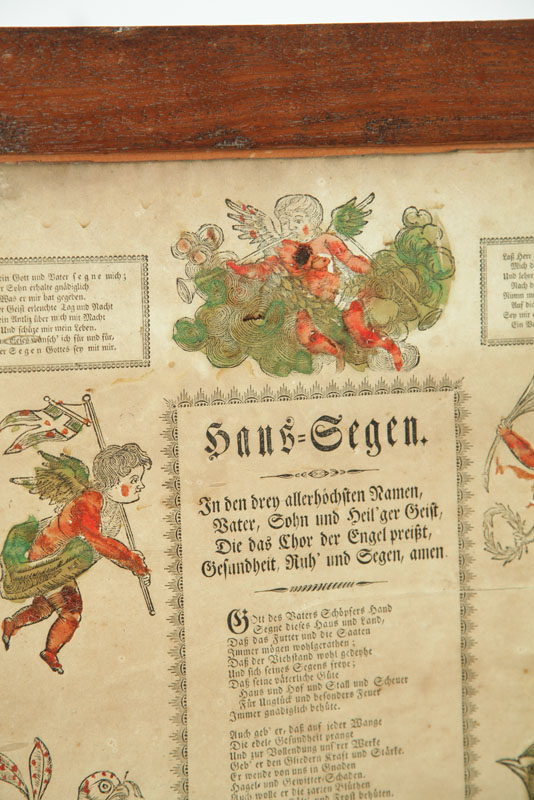 ein Gott und Vater segne mich;
r Sohn erhalte gnädiglich
Was er mir hat gegeben.
r Geist erleuchte Tag und Nacht
ein Antliz über mich mit Macht
Und schütze mir mein Leben.
dieses wünsch' ich für und für,
er Segen Gottes sey mit mir.
Laß Herr
Mich d
Und lehre
Nach d
Nimm m
Auf di
Sey mir
Ein Va
Haus=Segen.
In den drey allerhöchsten Namen,
Vater, Sohn und Heil'ger Geist,
Die das Chor der Engel preißt,
Gesundheit, Ruh' und Segen, amen.
Gott des Vaters Schöpfers Hand
Segne dieses Haus und Land,
Daß das Futter und die Saaten
Immer mögen wohlgerathen;
Daß der Viehstand wohl gedeyhe
Und sich seines Segens freye;
Daß seine väterliche Güte
Haus und Hof und Stall und Scheuer
Für Unglück und besonders Feuer
Immer gnädiglich behüte.
Auch geb' er, daß auf jeder Wange
Die edele Gesundheit prange
Und zur Vollendung uns'rer Werke
Geb' er den Gliedern Kraft und Stärke.
Er wende von uns in Gnaden
Hagel- und Gewitter-Schaden.
Auch wolle er die zarten Blüthen
und Frost behüten.